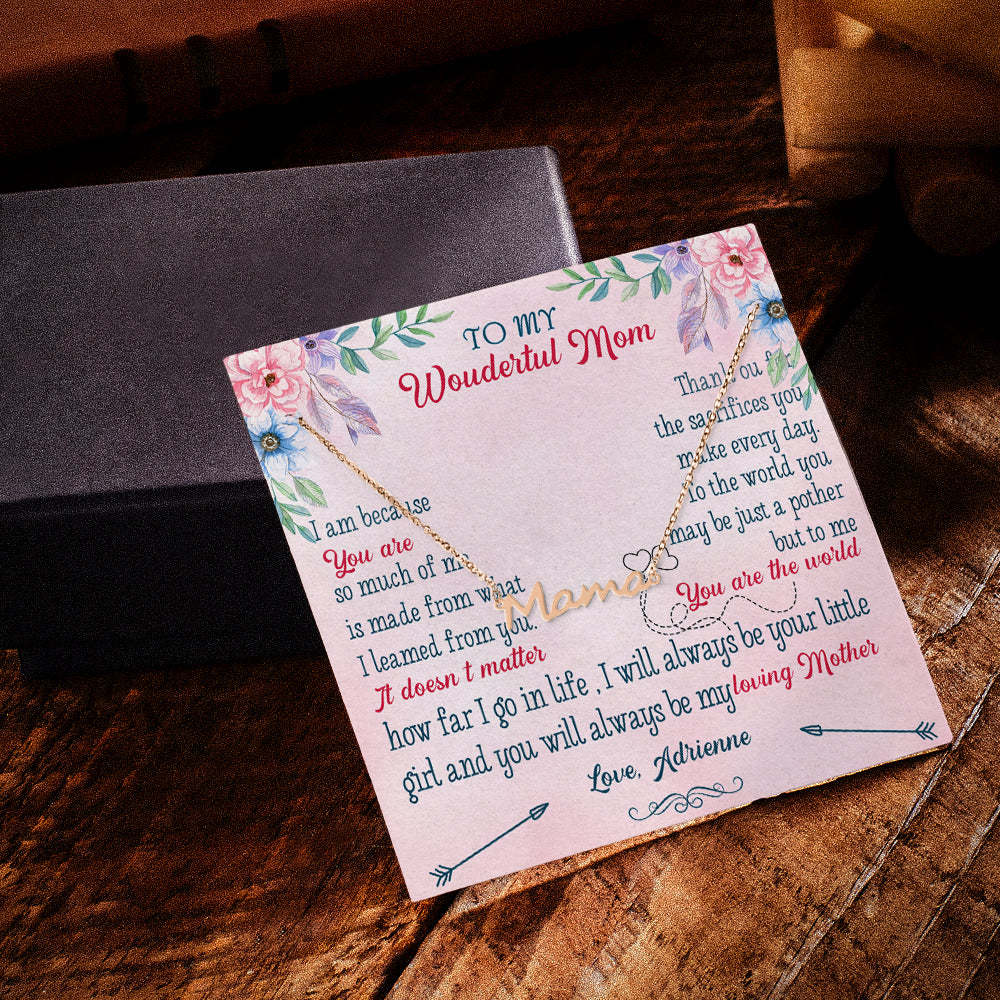 TO MY
Wouderful Mom
I am because
You are
so much of me
is made from what
I leamed from you.
Thank you for
the sacrifices you
make every day.
To the world you
may be just a pother
but to me
You are the world
Mama
It doesn t matter
how far I go in life , I will always be your little
girl and you will always be my loving Mother
Love, Adrienne